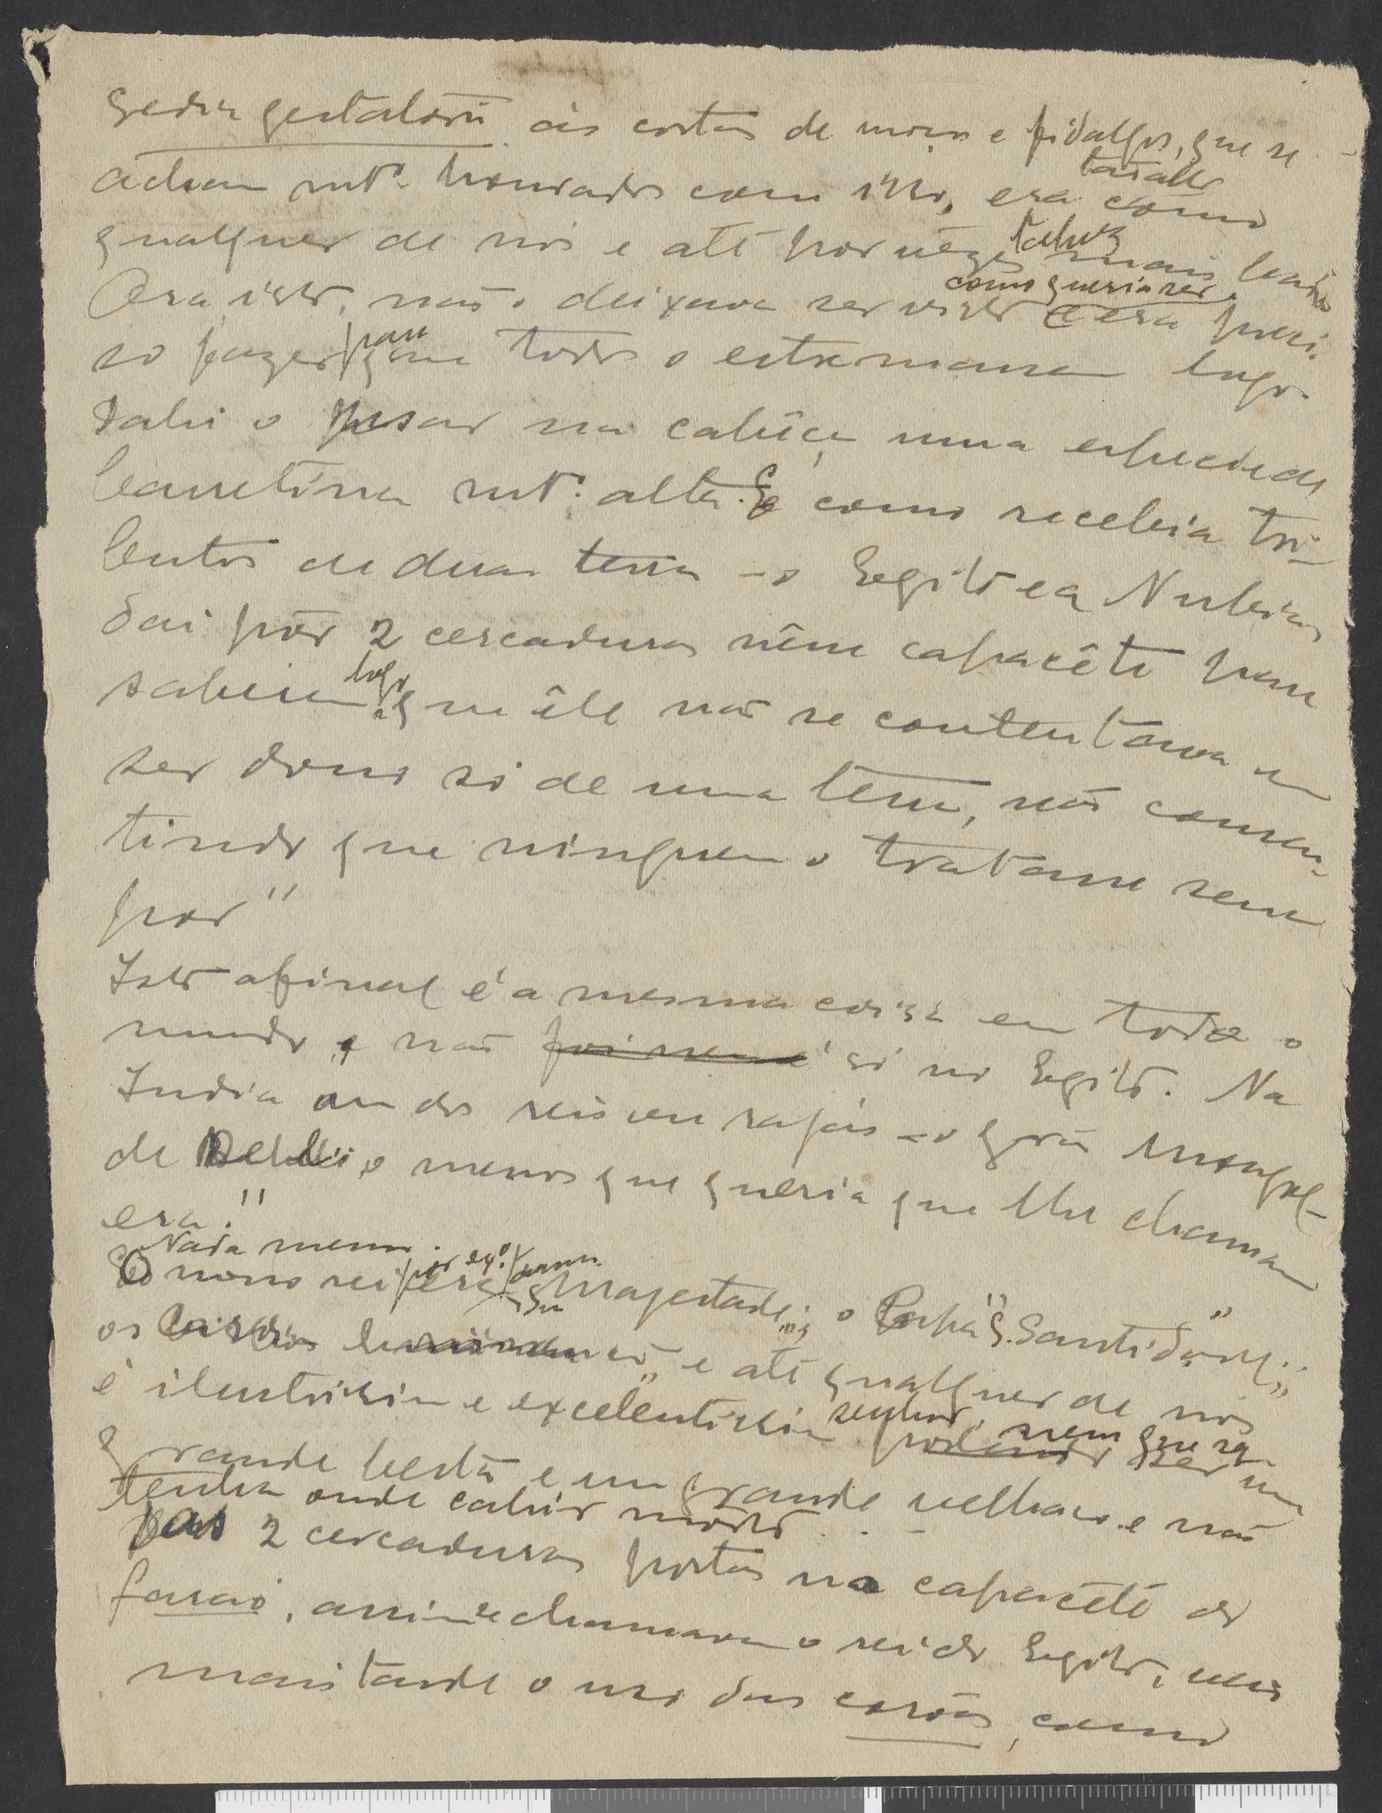 Sedia gestatoria às costas de moços e fidalgos, que se
achavam mt.º honrados com isso, era como tal
qualquer de nós e até por vezes talvez mais
Ora isto, não o deixava ser visto como queria ser e era preci-
so fazer para que todos o extremassem logo.
Dahi o pesar na cabêça uma espécie de
barretina mt.º alta. E como recebia tri-
butos de duas terras -o Egito e a Nubia
dai pôr 2 cercaduras nêsse capacête para
saberem logo que êle não se contentava em
ser dono só de uma terra, não consen-
tindo que ninguem o tratasse sem
por"
Isto afinal é a mesma coisa em todo o
mundo e não foi nem é só no Egito. Na
India um dos reis ou rajás -o grão mongol-
de Delhi, o menos que queria que lhe chamassem
era "
Nada menos.
O nosso rei por ex.º era Sua Majestade; o Papa "S. Santidade";
os e até qualquer de nós
é ilustrissimo e excelentissimo senhor, nem que seja um
grande bestа e um grande velhaco e não
tenha onde cahir morto...
Das 2 cercaduras postas no capacête do
faraó, assim se chamava o rei do Egito, veio
mais tarde o uso das corôas, como